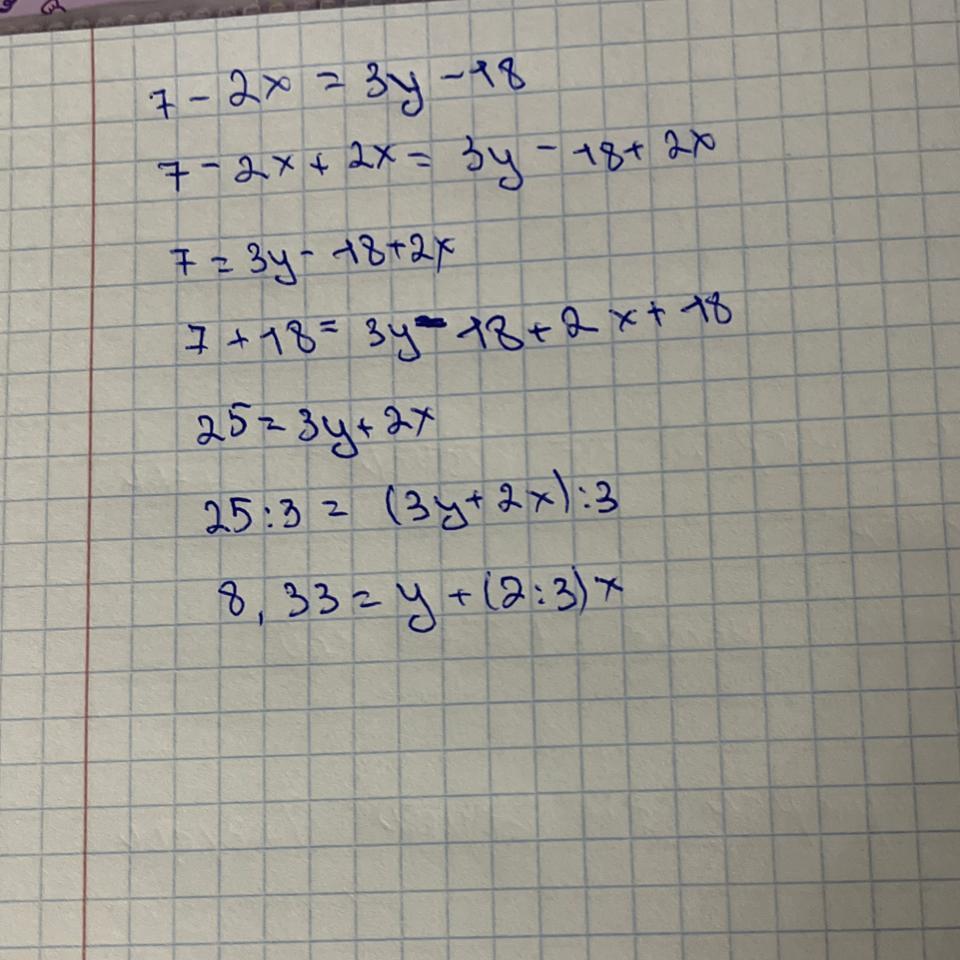 7 - 2x = 3y - 18
7 - 2x + 2x = 3y - 18 + 2x
7 = 3y - 18 + 2x
7 + 18 = 3y - 18 + 2x + 18
25 = 3y + 2x
25 : 3 = (3y + 2x) : 3
8,33 = y + (2 : 3)x